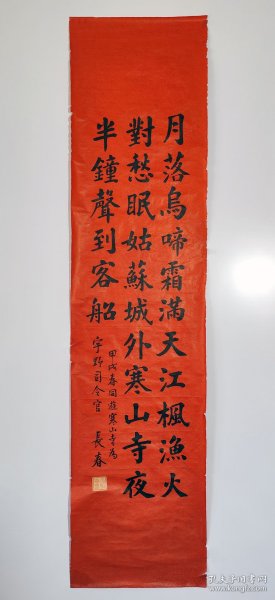 月落烏啼霜滿天江楓漁火
對愁眠姑蘇城外寒山寺夜
半鐘聲到客船
甲戌春回遊寒山寺為
宇野司令官
長春
孔夫子旧书网